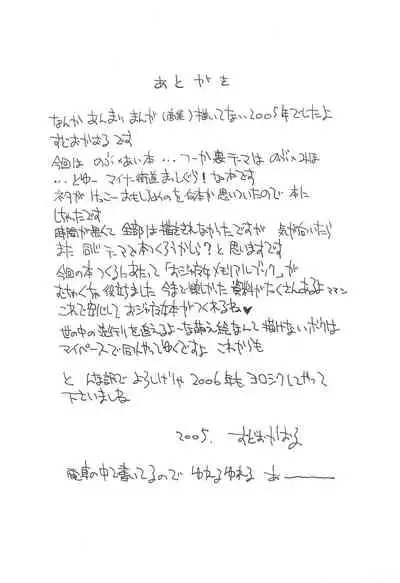 あとがき
なんか あんまり まんが(原稿)描いてない 2005年でしたよ
すどおかおるです
今回は のぶ×あい本 … つーか裏テーマは のぶ×みほ
… とゆー マイナー街道まっしぐら! な本です
ネタが けっこーおもしろいのを 何本か思いついたので 本に
しちゃったです
時間が無くて 全部は描ききれなかったですが 気が向いたら
また 同じテーマで本つくろうかしら? と思いますです
今回の本つくるにあたって 「おジャ魔女メモリアルブック」が
むちゃくちゃ役立ちました 今まで無かった資料がたくさんあるよママン
これで安心して おジャ魔女本がつくれるね♥
世の中の流行りを追えるよーな萌え絵なんて描けないボクは
マイペースで同人やってゆくですよ これからも
と んな訳で よろしければ 2006年も ヨロシクしてやって
下さいましね
2005. すどおかおる
電車の中で書いてるので ゆれるゆれる あ———